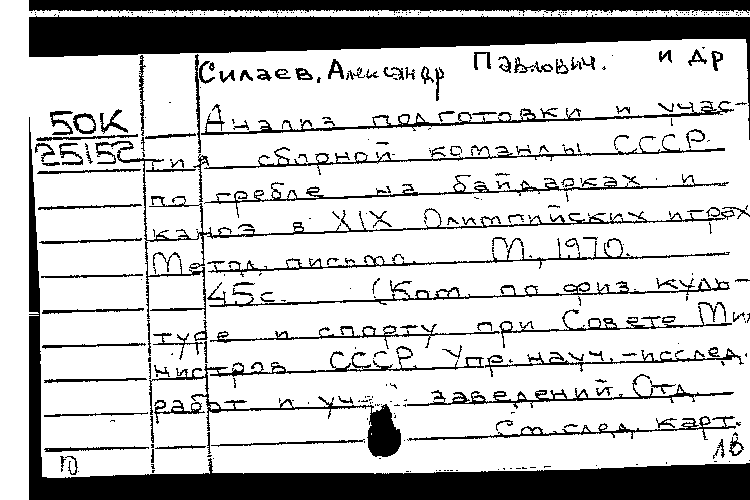 Силаев, Александр Павлович. и др
50К
25152
Анализ подготовки и учас-
тия сборной команды СССР
по гребле на байдарках и
каноэ в XIX Олимпийских играх
Метод. письмо. М., 1970.
45с. (Ком. по физ. куль-
туре и спорту при Совете Ми-
нистров СССР. Упр. науч.-исслед.
работ и уч заведений. Отд.
См. след. карт.